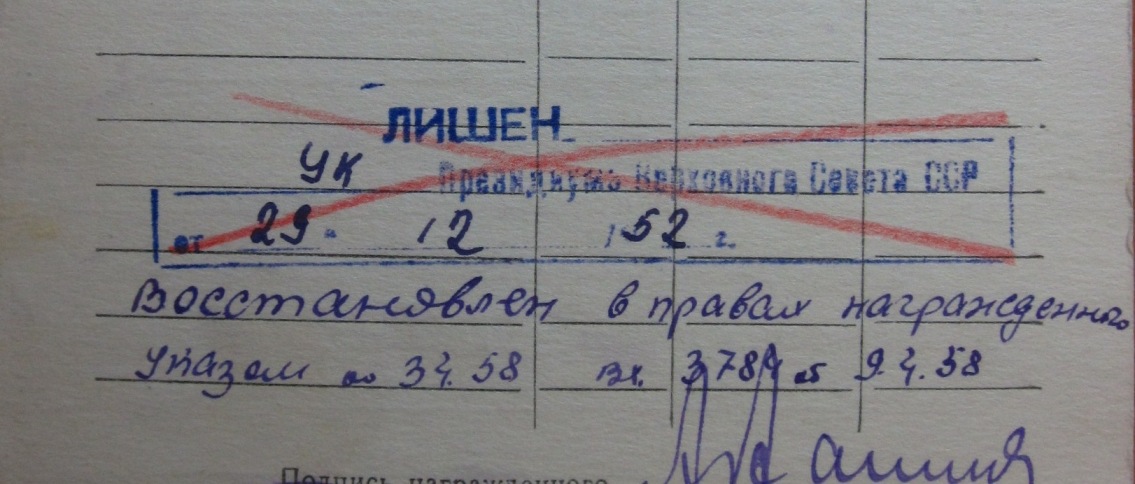 ЛИШЕН
УК Президиума Верховного Совета ССР
от 29 " 12 152 г.
Восстановлен в правах награжденного
Указом от 3.4.58 вх. 3784 от 9.4.58
Подпись награжденного